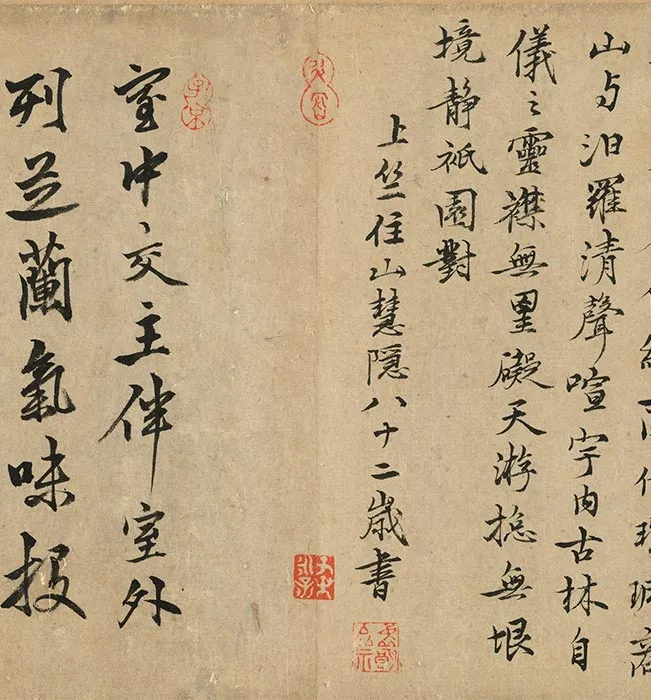 山与汨羅清聲喧宇内古林自
儀之靈襟無罣礙天游摠無垠
境静祇園對
上竺住山慧隱八十二歲書
子京
室中交主伴室外
列芝蘭氣味投